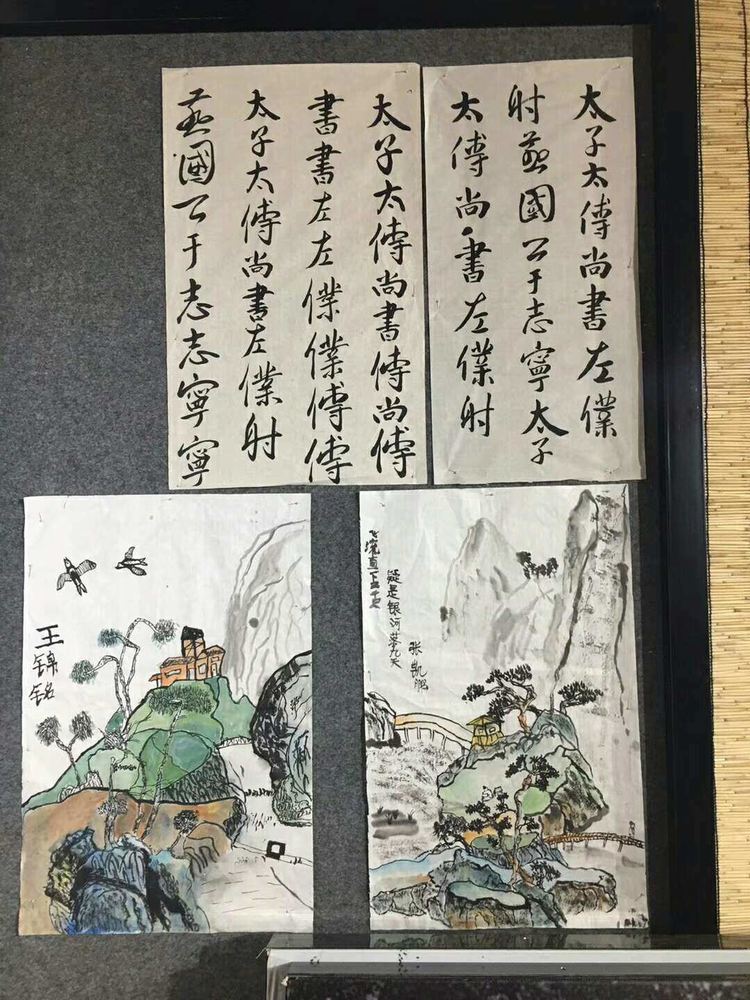 太子太傅尚書左僕
射燕國公于志寧太子
太傅尚書左僕射
太子太傅尚書傅尚傅
書書左左僕僕傅傅
太子太傅尚書左僕射
燕國公于志志寧寧
王锦铭
飞流直下三千尺
疑是银河落九天
张凯鹏